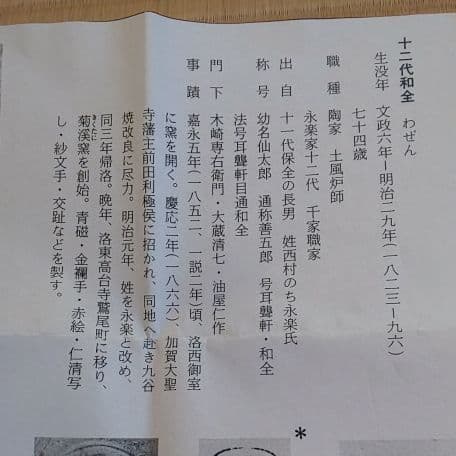 十二代和全　わぜん
生没年　文政六年ー明治二九年(一八二三ー九六)
七十四歳
職種　陶家　土風炉師
永楽家十二代　千家職家
出自　十一代保全の長男　姓西村のち永楽氏
称号　幼名仙太郎　通称善五郎　号耳聾軒・和全
法号耳聾軒目通和全
門下　木崎専右衛門・大蔵清七・油屋仁作
事蹟　嘉永五年(一八五二、一説二年)頃、洛西御室
に窯を開く。慶応二年(一八六六)、加賀大聖
寺藩主前田利極侯に招かれ、同地へ赴き九谷
焼改良に尽力。明治元年、姓を永楽と改め、
同三年帰洛。晩年、洛東高台寺鷲尾町に移り、
菊渓窯を創始。青磁・金襴手・赤絵・仁清写
きくたに
し・紗文手・交趾などを製す。
*